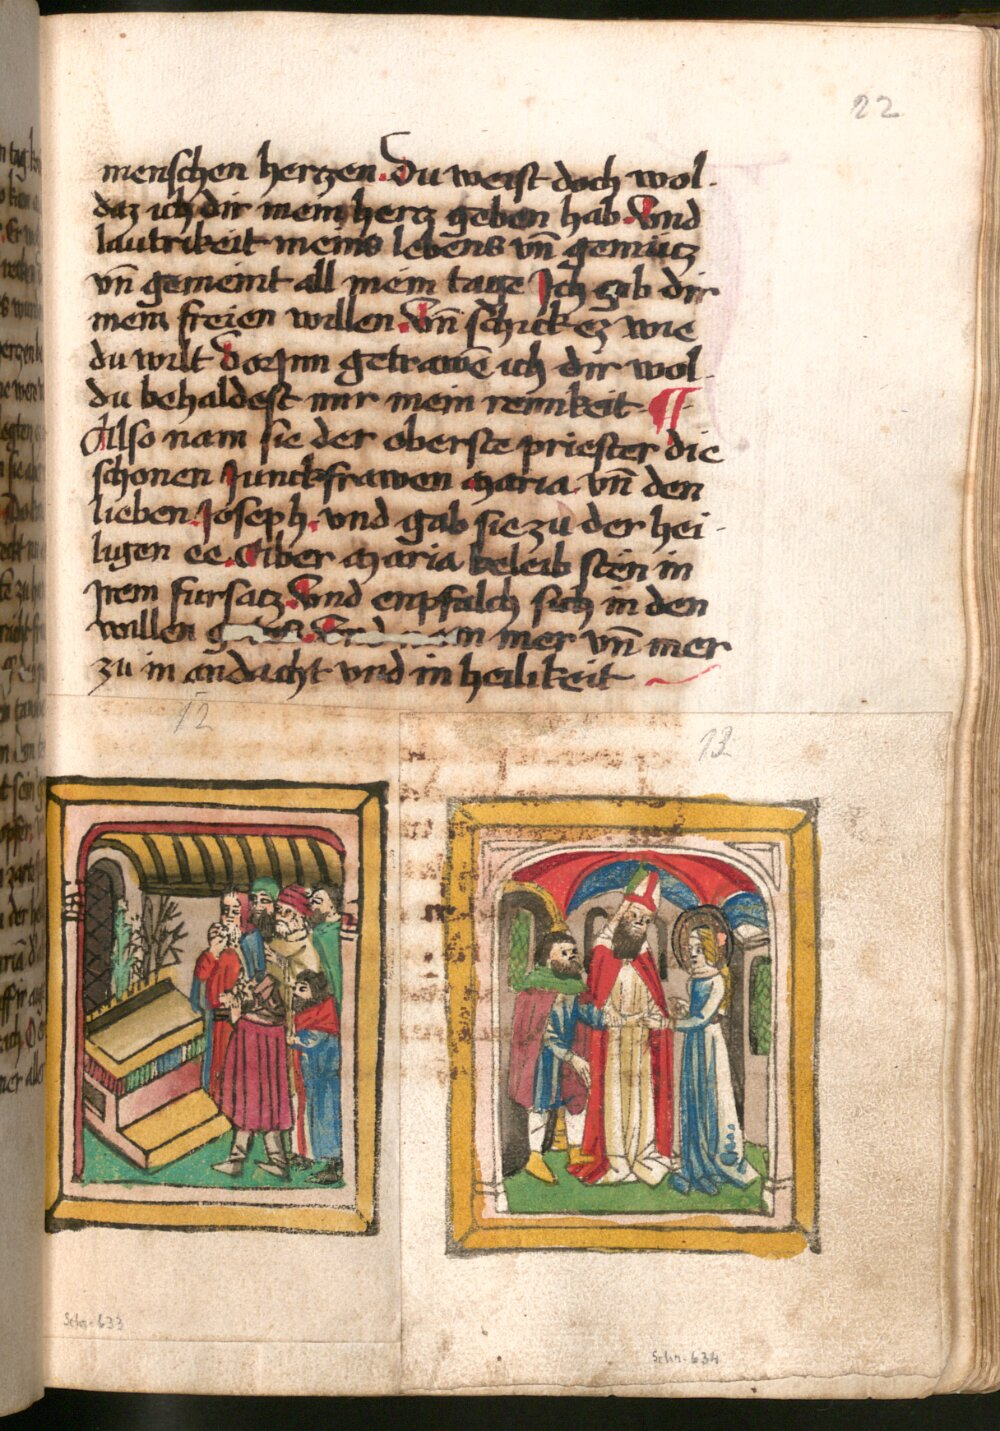 22
menschen hertzen. Du weist doch wol.
daz ich dir mein hertz geben hab. Vnd
lautrikeit meins lebens vn̄ gemütz
vn̄ gemeint all mein tage Ich gab dir
mein freien willen. Vn̄ schick ez wie
du wilt dorinn getrawē ich dir wol.
du behaldest mir mein reinikeit ¶
Also nam sie der oberste priester die
schonen Junckfrawen maria vn̄ den
lieben. Joseph. vnd gab sie zu der hei-
ligen ee. Aber maria beleib stēn in
Irem fursatz. Vnd enpfalch sich in den
willen Vnd mer vn̄ mer
zu in andacht vnd in heilikeit
12
13
Schr. 633
Schr. 634